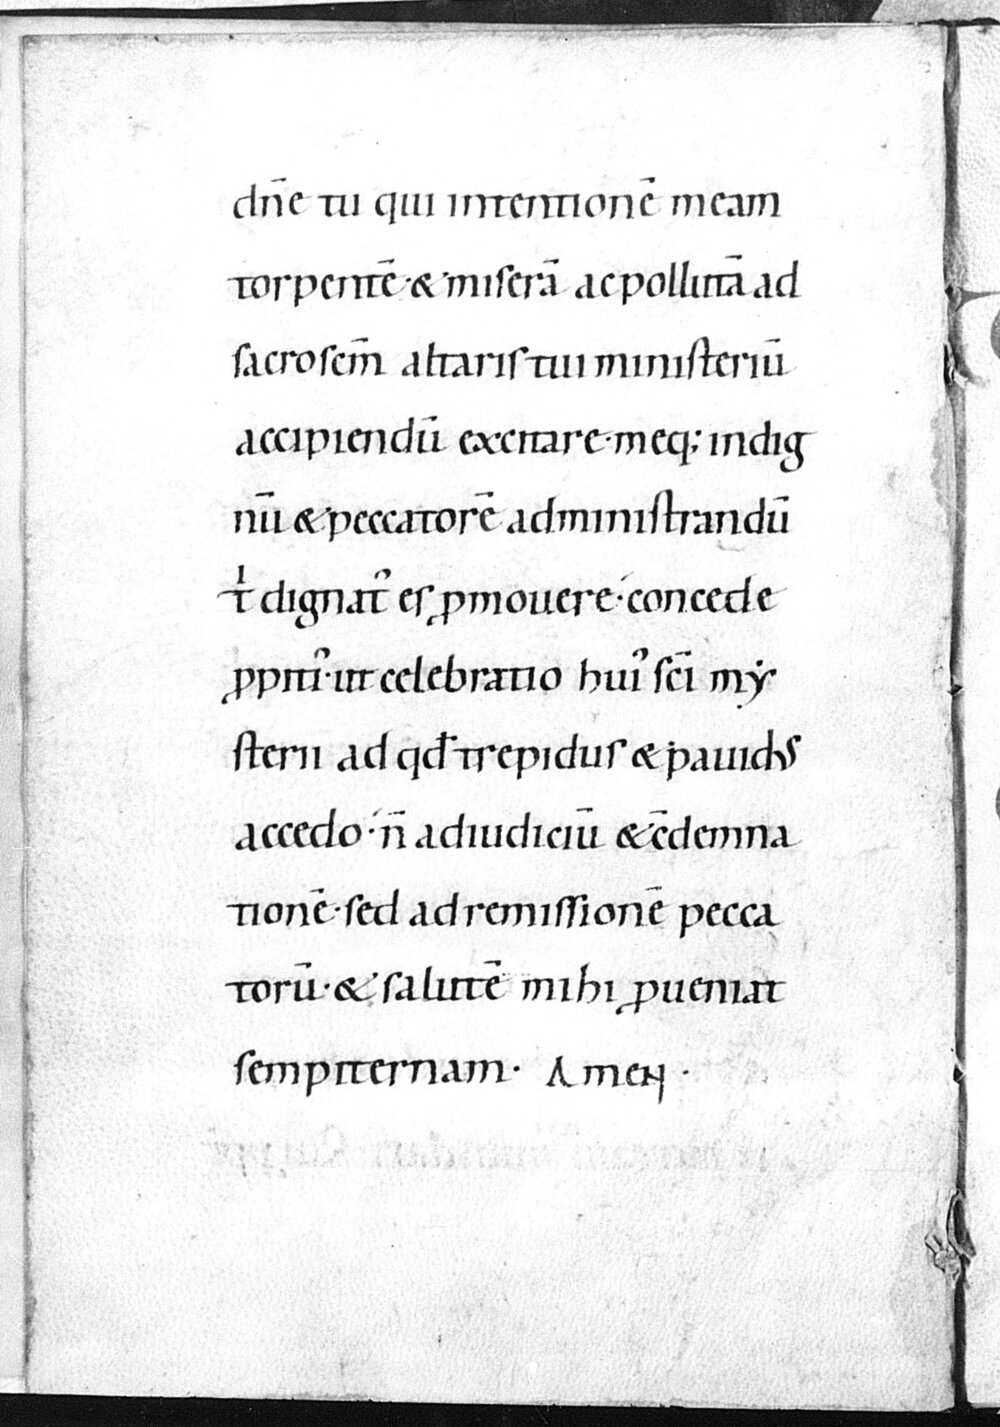 dn̄e tu qui intentionē meam
torpentē· & miserā ac pollutā ad
sacroscm̄ altaris tui ministeriū
accipiendū excitare· meq; indig
nū & peccatorē administrandū
t dignat᾿ es ꝓmouere· concede
ꝓpiti᾿· ut celebratio hui᾿ sc̄i mẏ
sterii ad qđ trepidus & pauidus
accedo· n̄ ad iudiciū & c̄demna
tionē· sed ad remissionē pecca
torū· & salutē mihi ꝓueniat
sempiternam· Amen ·